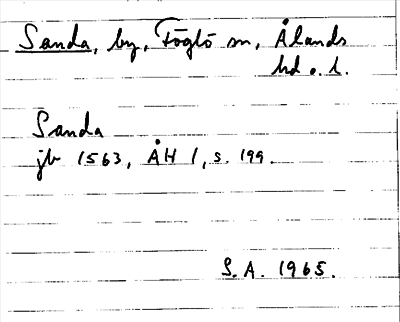 Sanda, by, Föglö sn, Ålands
hd o. l.
Sanda
jb 1563, ÅH 1, s. 199.
S.A. 1965.